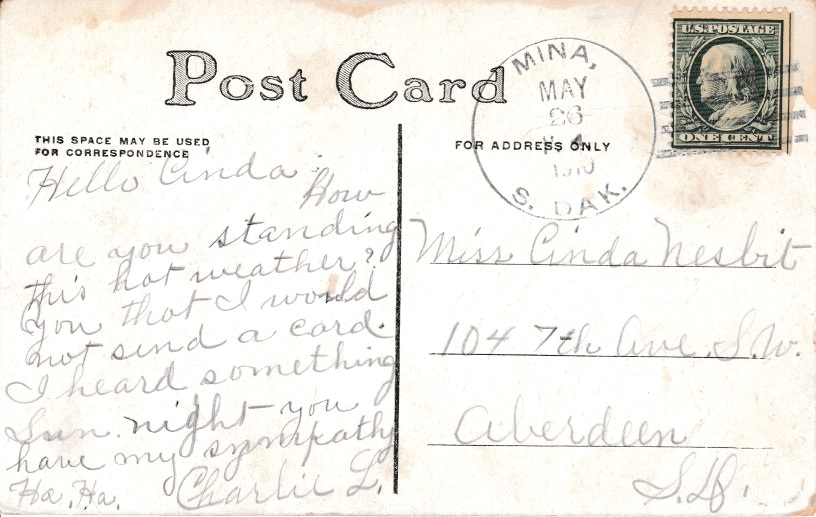 Post Card
THIS SPACE MAY BE USED
FOR CORRESPONDENCE
FOR ADDRESS ONLY
MINA,
MAY
26
1910
S. DAK.
U.S. POSTAGE
ONE CENT
Hello Cinda.
How
are you standing
this hot weather?
you that I would
not send a card.
I heard something
Sun. night you
have my sympathy
Ha, Ha. Charlie L.
Miss Cinda Nesbit
104 7th Ave. S.W.
Aberdeen
S.D.